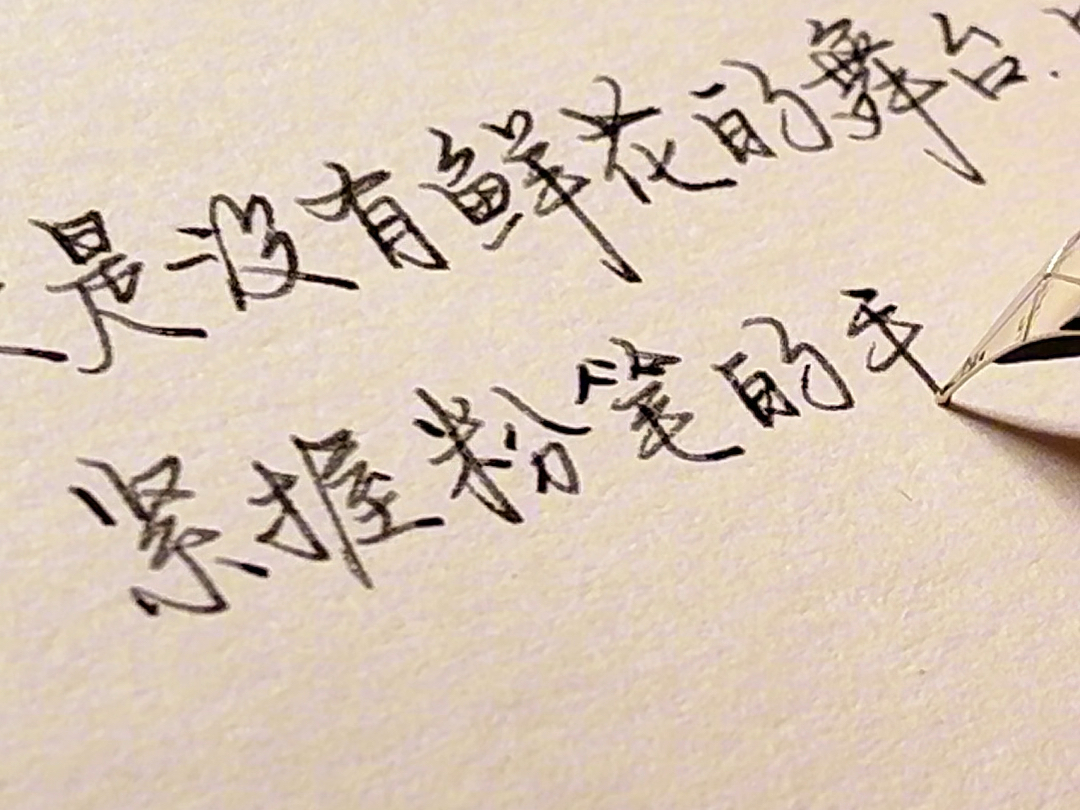 是没有鲜花的舞台.
紧握粉笔的手